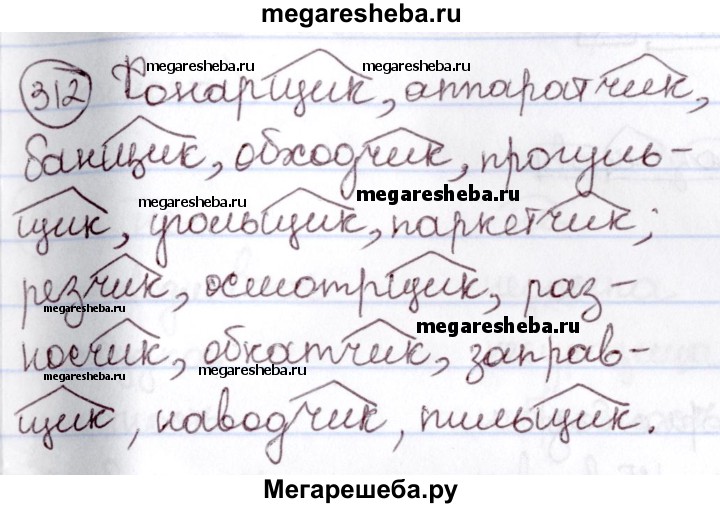 megaresheba.ru
megaresheba.ru megaresheba.ru
312 Фонарщик, аппаратчик,
банщик, обходчик, прогуль-
megaresheba.ru megaresheba.ru
щик, угольщик, паркетчик;
резчик, осмотрщик, раз-
megaresheba.ru megaresheba.ru
носчик, обкатчик, заправ-
megaresheba.ru megaresheba.ru
щик, наводчик, пильщик.
Мегарешеба.ру